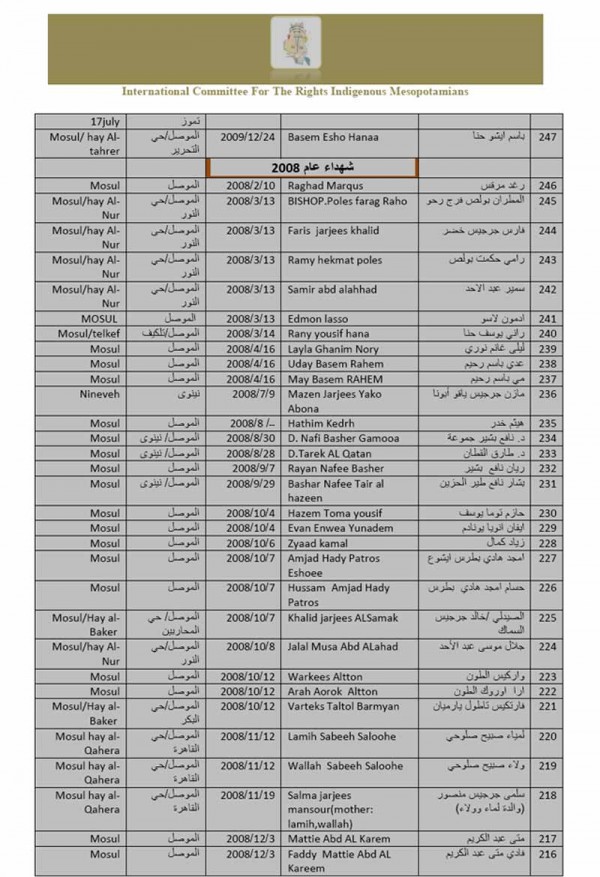 International Committee For The Rights Indigenous Mesopotamians
17july تموز
Mosul/ hay Al- الموصل/حي 2009/12/24 Basem Esho Hanaa باسم ايشو حنا 247
tahrer التحرير
شهداء عام 2008
Mosul الموصل 2008/2/10 Raghad Marqus رغد مرقس 246
Mosul/hay Al- الموصل/حي 2008/3/13 BISHOP.Poles farag Raho المطران بولص فرج رحو 245
Nur النور
Mosul/hay Al- الموصل/حي 2008/3/13 Faris jarjees khalid فارس جرجيس خضر 244
Nur النور
Mosul/hay Al- الموصل/حي 2008/3/13 Ramy hekmat poles رامي حكمت بولص 243
Nur النور
Mosul/hay Al- الموصل/حي 2008/3/13 Samir abd alahhad سمير عبد الاحد 242
Nur النور
MOSUL الموصل 2008/3/13 Edmon lasso ادمون لاسو 241
Mosul/telkef الموصل/تلكيف 2008/3/14 Rany yousif hana راني يوسف حنا 240
Mosul الموصل 2008/4/16 Layla Ghanim Nory ليلى غانم نوري 239
Mosul الموصل 2008/4/16 Uday Basem Rahem عدي باسم رحيم 238
Mosul الموصل 2008/4/16 May Basem RAHEM مي باسم رحيم 237
Nineveh نينوى 2008/7/9 Mazen Jarjees Yako مازن جرجيس ياقو أبونا 236
Abona
Mosul الموصل 2008/8 /.. Hathim Kedrh هيثم خدر 235
Mosul الموصل/ نينوى 2008/8/30 D. Nafi Basher Gamooa د. نافع بشير جموعة 234
Mosul الموصل/ نينوى 2008/8/28 D.Tarek AL Qatan د. طارق القطان 233
Mosul الموصل 2008/9/7 Rayan Nafee Basher ريان نافع بشير 232
Mosul الموصل/ نينوى 2008/9/29 Bashar Nafee Tair al بشار نافع طير الحزين 231
hazeen
Mosul الموصل 2008/10/4 Hazem Toma yousif حازم توما يوسف 230
Mosul الموصل 2008/10/4 Evan Enwea Yunadem ايفان انويا يونادم 229
Mosul الموصل 2008/10/6 Zyaad kamal زياد كمال 228
Mosul الموصل 2008/10/7 Amjad Hady Patros امجد هادي بطرس ايشوع 227
Eshoee
Mosul الموصل 2008/10/7 Hussam Amjad Hady حسام امجد هادي بطرس 226
Patros
Mosul/Hay al- الموصل/ حي 2008/10/7 Khalid jarjees ALSamak الصيدلي /خالد جرجيس 225
Baker المحاربين السماك
Mosul/hay Al- الموصل/حي 2008/10/8 Jalal Musa Abd ALahad جلال موسى عبد الأحد 224
Nur النور
Mosul الموصل 2008/10/12 Warkees Altton واركيس الطون 223
Mosul الموصل 2008/10/12 Arah Aorok Altton ارا اوروك الطون 222
Mosul/Hay al- الموصل/حي 2008/10/12 Varteks Taltol Barmyan فارتكيس تاطول يارميان 221
Baker البكر
Mosul hay al- الموصل/حي 2008/11/12 Lamih Sabeeh Saloohe لمياء صبيح صلوحي 220
Qahera القاهرة
Mosul hay al- الموصل/حي 2008/11/12 Wallah Sabeeh Saloohe ولاء صبيح صلوحي 219
Qahera القاهرة
Mosul hay al- الموصل/حي 2008/11/19 Salma jarjees سلمى جرجيس منصور 218
Qahera القاهرة mansour(mother: (والدة لماء وولاء)
lamih,wallah)
Mosul الموصل 2008/12/3 Mattie Abd AL Karem متى عبد الكريم 217
Mosul الموصل 2008/12/3 Faddy Mattie Abd AL فادي متى عبد الكريم 216
Kareem